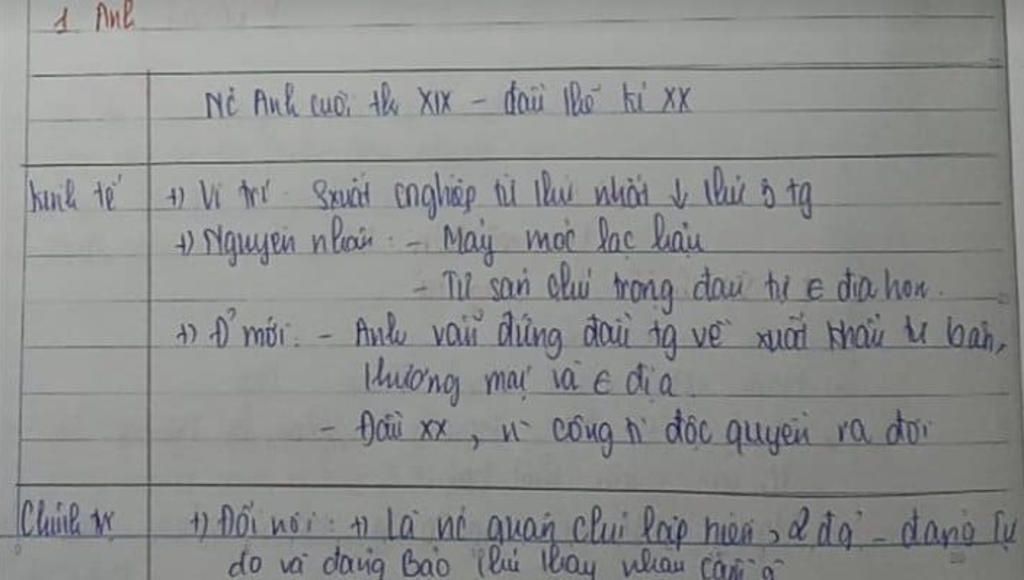 1 Anh
Nc Anh cuối tk XIX - đầu thế kỉ XX
Kinh tế +) Vị trí: Sxuất cnghiệp từ thứ nhất ↓ thứ 3 tg
+) Nguyên nhân: - Máy móc lạc hậu
- Tư sản chú trọng đầu tư € địa hơn.
+) Đ² mới: - Anh vẫn đứng đầu tg về xuất khẩu tư bản,
thương mại và € địa
- Đầu XX, n` công ti độc quyền ra đời
Chính trị +) Đối nội: +) Là nc quân chủ lập hiến, 2 đả - đảng Tự
do và đảng Bảo thủ thay nhau cầm q